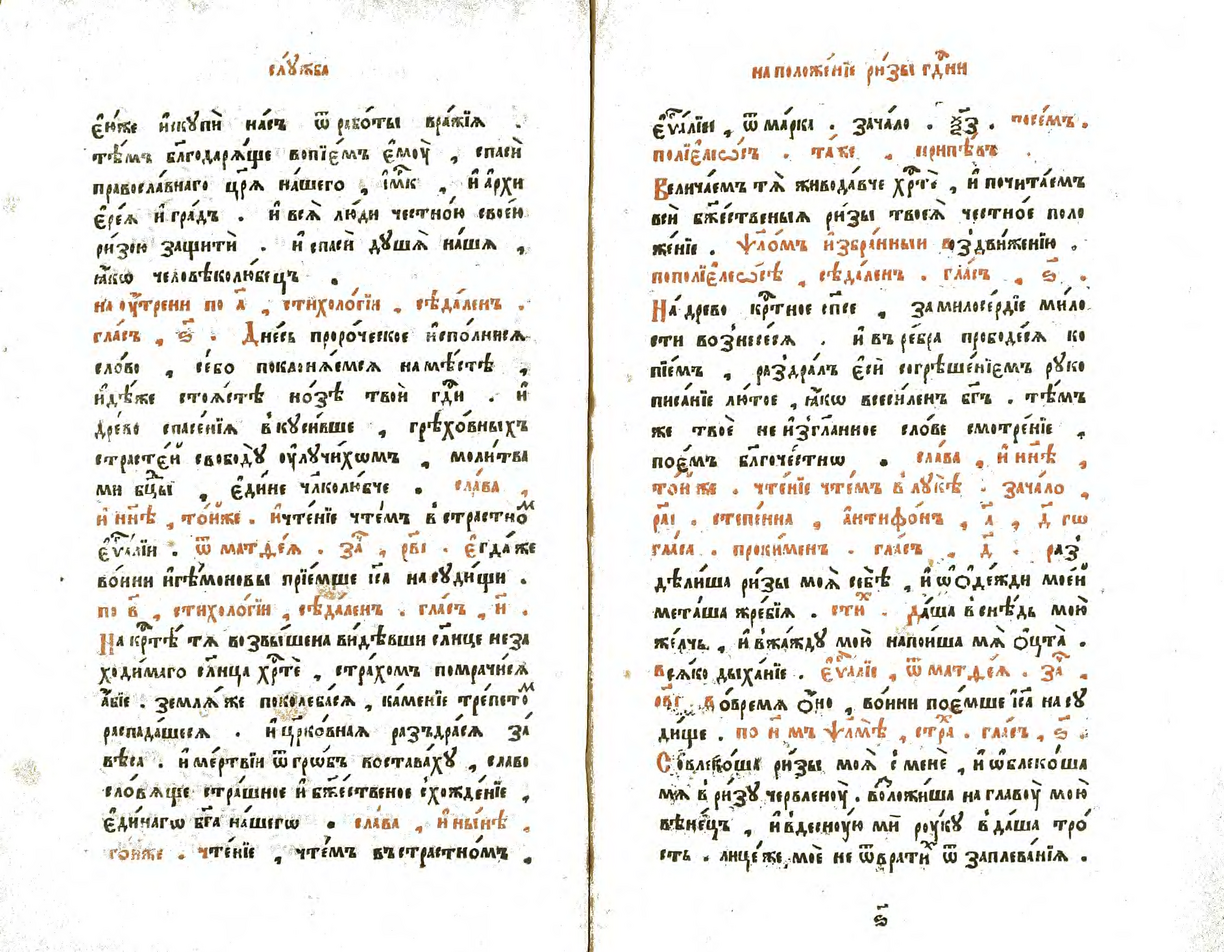 слꙋ́жба
є҆ю́же и҆скꙋпѝ на́съ ѿ рабо́ты вра́жїѧ .
тѣ́мъ бл҃годарѧ́ще вопїе́мъ є҆мꙋ̀ , спасѝ
правосла́внаго цр҃ѧ̀ на́шего , и҆́м҃к , и҆ а҆рхи
є҆ре́ѧ и҆ гра́дъ . и҆ всѧ̀ лю́ди честно́ю свое́ю
ри́зою защитѝ . и҆ спасѝ дꙋ́шѧ на́шѧ ,
ꙗ҆́кѡ человѣколю́бецъ .
на ᲂу҆́трени по а҃ , стихоло́гїи , сѣда́ленъ .
гла́съ , ѕ҃ . Дне́сь проро́ческое и҆спо́лнисѧ
сло́во , се́бо покланѧ́емсѧ на мѣ́стѣ ,
и҆дѣ́же стоѧ́стѣ но́зѣ твоѝ гд҇и . и҆
дре́во спасе́нїѧ вкꙋси́вше , грѣхо́вныхъ
страсте́й свобо́дꙋ ᲂу҆лꙋчи́хѡмъ , моли́тва
ми бц҃ы , є҆ди́не чл҃колю́бче . сла́ва ,
и҆ ны́нѣ , то́йже . и҆ чте́нїе чте́мъ в страстно́м
є҆ѵⷢ҇а́лїи . ѿ матѳе́ѧ . за҃ , рв҃і . є҆гда́же
во́ини и҆ге́мѡновы прїе́мше і҆с҃а на сꙋди́щи .
по в҃ , стихоло́гїи , сѣда́ленъ . гла́съ , и҃ .
На крⷭ҇тѣ̀ тѧ̀ возвы́шена ви́дѣвши сл҃нце неза
ходи́маго сл҃нца хрⷭ҇тѐ , стра́хомъ помрачи́сѧ
а҆́бїе . землѧ́же поколеба́сѧ , ка́менїе тре́петом
распада́шесѧ . и҆ цр҃ко́внаѧ раздра́сѧ за
вѣ́са . и҆ ме́ртвїи ѿ гро́бъ востава́хꙋ , славо
сло́вѧще стра́шное и҆ бж҃е́ственое схожде́нїе ,
є҆ди́нагѡ бг҃а на́шегѡ . сла́ва , и҆ ны́нѣ ,
то́йже . чте́нїе , чте́мъ въ стра́стномъ .
на положе́нїе ри́зы гдⷭ҇ни
є҆ѵⷢ҇а́лїи , ѿ ма́рка . зача́ло . ѯ҃з . посе́мъ .
полїеле́ѡсъ . та́же , припѣ́въ
Велича́емъ тѧ̀ живода́вче хрⷭ҇тѐ , и҆ почита́емъ
вси бж҃е́ственыѧ ри́зы твоеѧ̀ честно́е поло
же́нїе . ѱало́мъ и҆збра́нныи воздви́женїю .
по полїеле́ѡсѣ , сѣда́ленъ . гла́съ , ѕ҃ .
На дре́во крⷭ҇тное сп҃се , за милосе́рдїе мило
сти вознесе́сѧ . и҆ въ ре́бра прободе́сѧ ко
пїе́мъ , раздра́лъ є҆сѝ согрѣше́нїемъ рꙋко
писа́нїе лю́тое , ꙗ҆́кѡ всеси́ленъ бг҃ъ . тѣ́мъ
же твоѐ неи҆згла́нное сло́ве смотре́нїе ,
пое́мъ бл҃гоче́стнѡ . сла́ва , и҆ ны́нѣ ,
то́йже . чте́нїе чте́мъ в лꙋкѣ̀ . зача́ло ,
ра҃і . степе́нна , а҆нтифо́нъ , а҃ , д҃ гѡ
гла́са . проки́менъ . гла́съ , д҃ . раз
дѣли́ша ри́зы моѧ̀ себѣ̀ , и҆ ѡ҆ ѻ҆де́жди мое́й
мета́ша жре́бїѧ . сти́х . да́ша в снѣ́дь мою̀
же́лчь , и҆ в жа́ждꙋ мою̀ напои́ша мѧ̀ ѻ҆́цта .
всѧ́ко дыха́нїе . є҆ѵⷢ҇а́лїе , ѿ матѳе́ѧ . за҃ ,
Во вре́мѧ ѻ҆́но , во́ини пое́мше і҆с҃а на сꙋ
ди́ще . по н҃ мъ ѱалмѣ̀ , стра́ . гла́съ , ѕ҃ .
Совлеко́ша ри́зы моѧ̀ с менѐ , и҆ ѡ҆блеко́ша
мѧ̀ в ри́зꙋ черве́нꙋ . возложи́ша на главꙋ̀ мою̀
вѣне́цъ , и҆ в десно́ую мѝ рꙋ́кꙋ вда́ша тро́
сть . лице́же моѐ не ѿврати́х ѿ заплева́нїѧ .
ѕ҃